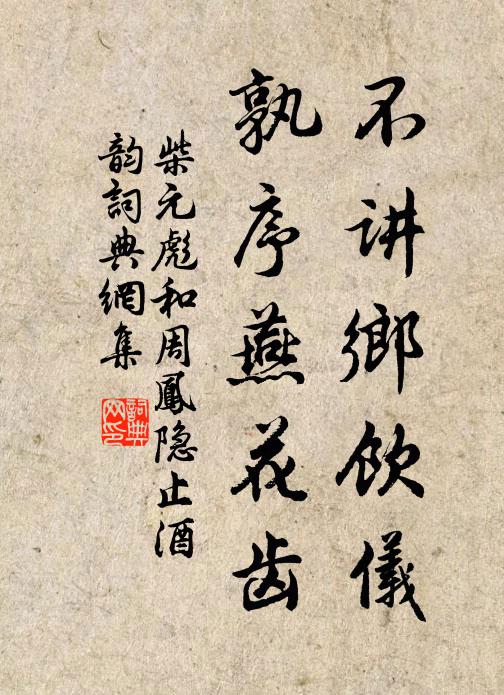 不讲鄉飲儀
孰序燕花齿
柴元彪和周鳳隐止酒
韵詞典網集
詞典网印